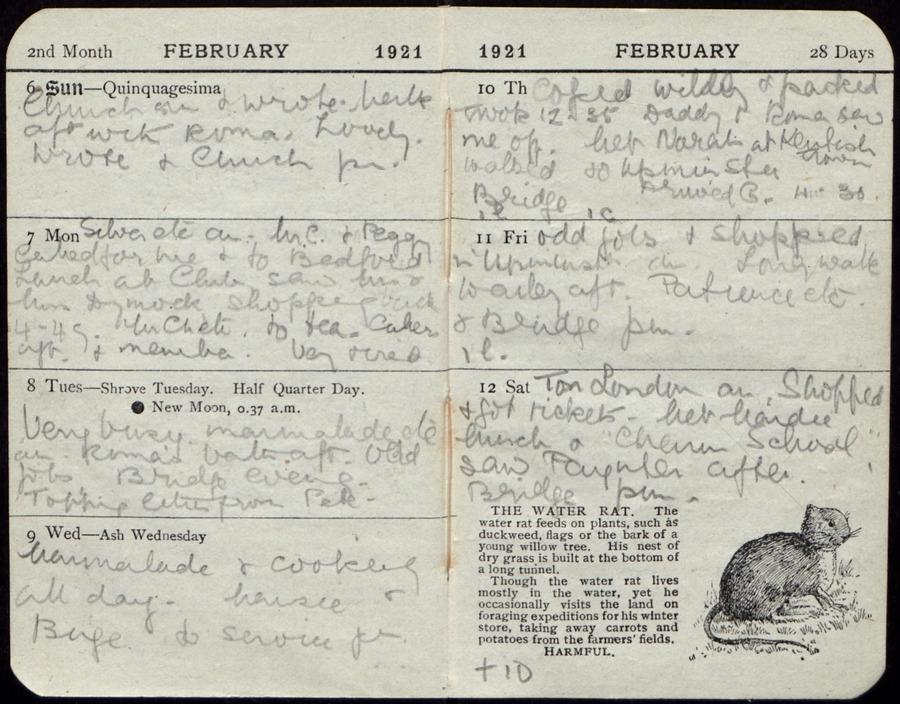 2nd Month FEBRUARY 1921
6 Sun—Quinquagesima
Church am & wrote. Walk
aft with Roma. Lovely.
Wrote & Church pm.
7 Mon Silver etc am. Mr C. & Peggy
called for me & to Bedford
Lunch at Club saw
Dymock shopping back
4-45. to tea. Cakes
aft. & . Very tired
8 Tues—Shrove Tuesday. Half Quarter Day.
New Moon, 0.37 a.m.
Very busy marmalade etc
am Roma's bath aft. Odd
jobs Bridge evening.
Topping letter from
9 Wed—Ash Wednesday
Marmalade & cooking
all day. &
to service pm
1921 FEBRUARY 28 Days
10 Th wildly & packed
12-35 Daddy & Roma saw
me off. Met at Kentish
Town
walked to Upminster
Bridge Arrived 4-30
11 Fri odd jobs & shopped
in Upminster am. Long walk
aft. Patience etc.
& Bridge pm.
12 Sat To London am. Shopped
& got tickets. Met
lunch & " School "
saw after.
Bridge pm.
THE WATER RAT. The
water rat feeds on plants, such as
duckweed, flags or the bark of a
young willow tree. His nest of
dry grass is built at the bottom of
a long tunnel.
Though the water rat lives
mostly in the water, yet he
occasionally visits the land on
foraging expeditions for his winter
store, taking away carrots and
potatoes from the farmers' fields.
HARMFUL.
+10